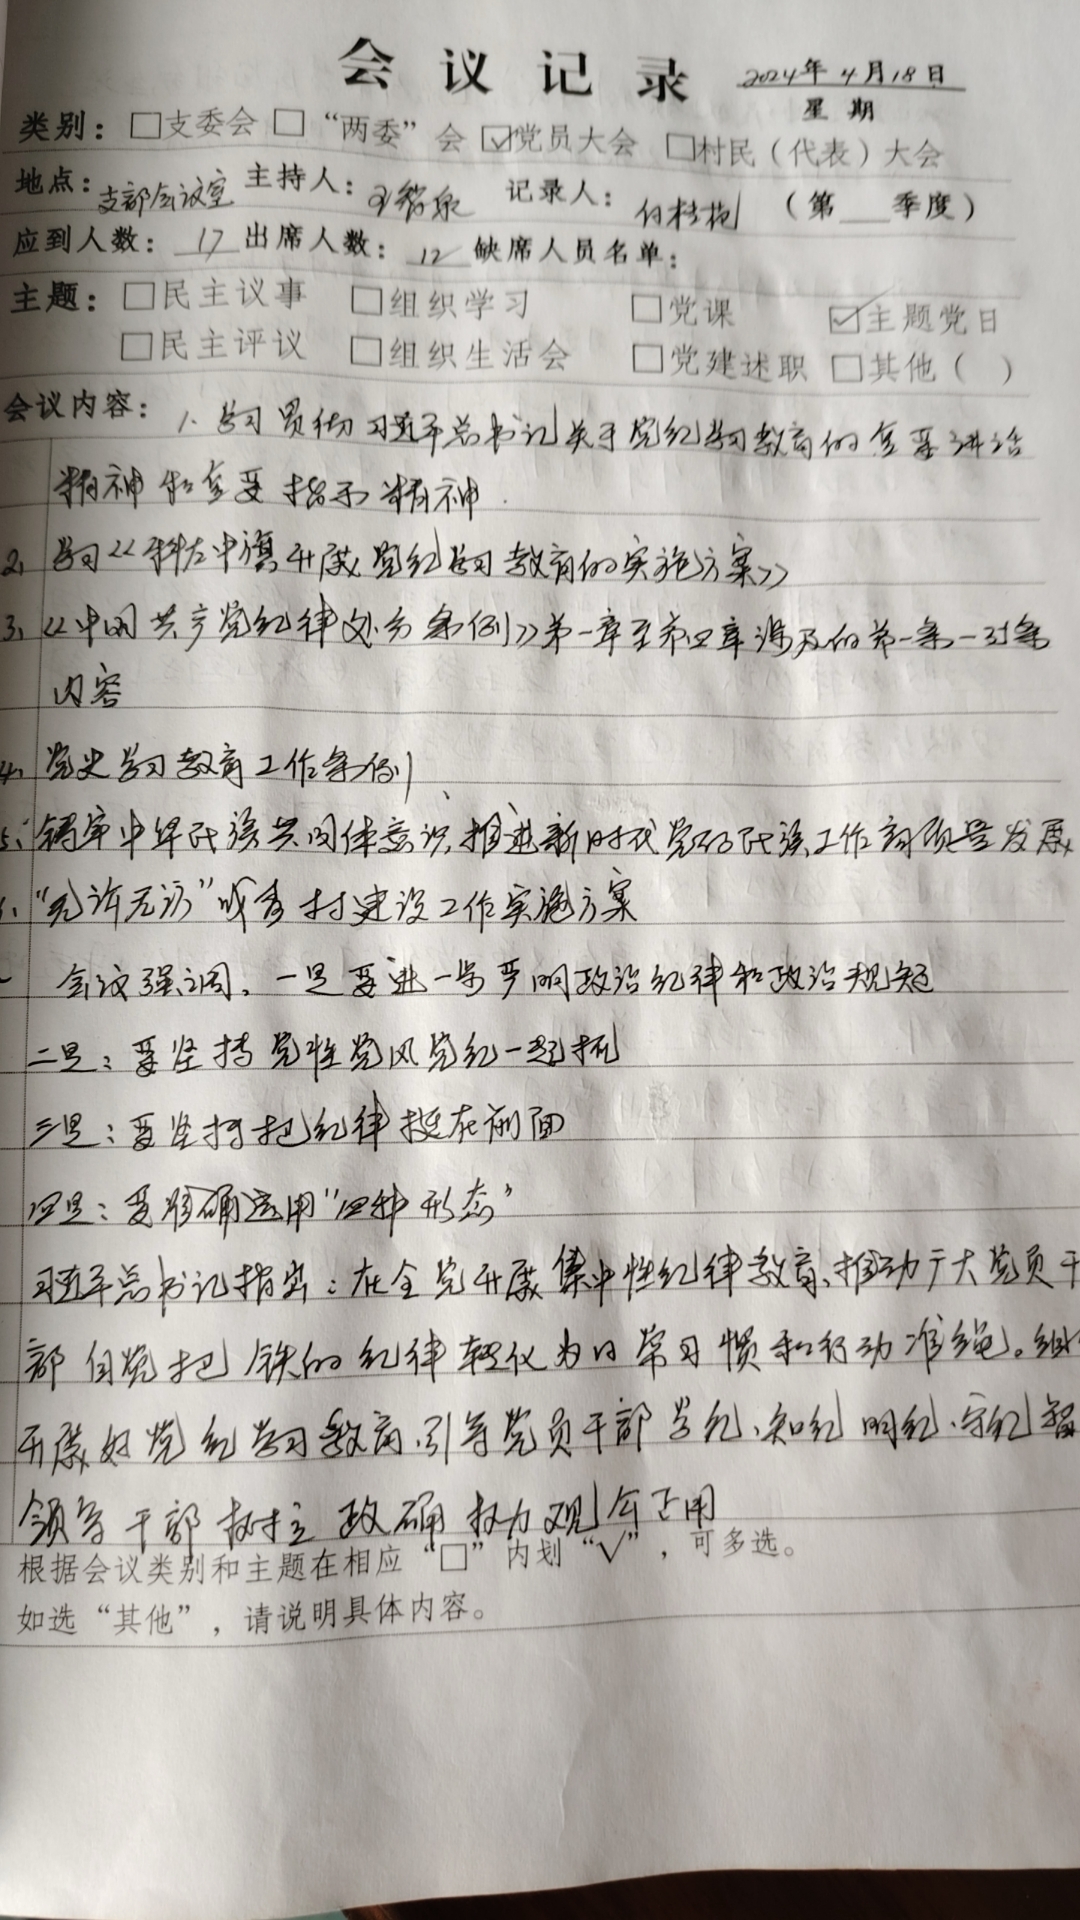 会议记录 2024年4月18日
星期
类别：□支委会 □“两委”会 ☑党员大会 □村民（代表）大会
地点：支部会议室 主持人： 记录人： （第 季度）
应到人数：17 出席人数：12 缺席人员名单：
主题：□民主议事 □组织学习 □党课 ☑主题党日
□民主评议 □组织生活会 □党建述职 □其他（ ）
会议内容：1、学习贯彻习近平总书记关于党纪学习教育的重要讲话
精神和重要指示精神.
2、学习《科左中旗开展党纪学习教育的实施方案》
3、《中国共产党纪律处分条例》第一章至第四章涉及的第一条—
内容
4、党史学习教育工作条例
5、铸牢中华民族共同体意识，推进新时代党的民族工作高质量发展
“无诈无访” 村建设工作实施方案
会议强调，一是要进一步严明政治纪律和政治规矩
二是：要坚持党性党风党纪一起抓
三是：要坚持把纪律挺在前面
四是：要准确运用“四种形态”
习近平总书记指出：在全党开展集中性纪律教育、推动广大党员干
部自觉把铁的纪律转化为日常习惯和行动准绳。组织
开展好党纪学习教育，引导党员干部学纪、知纪明纪、守纪
领导干部树立政确权力观
根据会议类别和主题在相应“□”内划“√”，可多选。
如选“其他”，请说明具体内容。